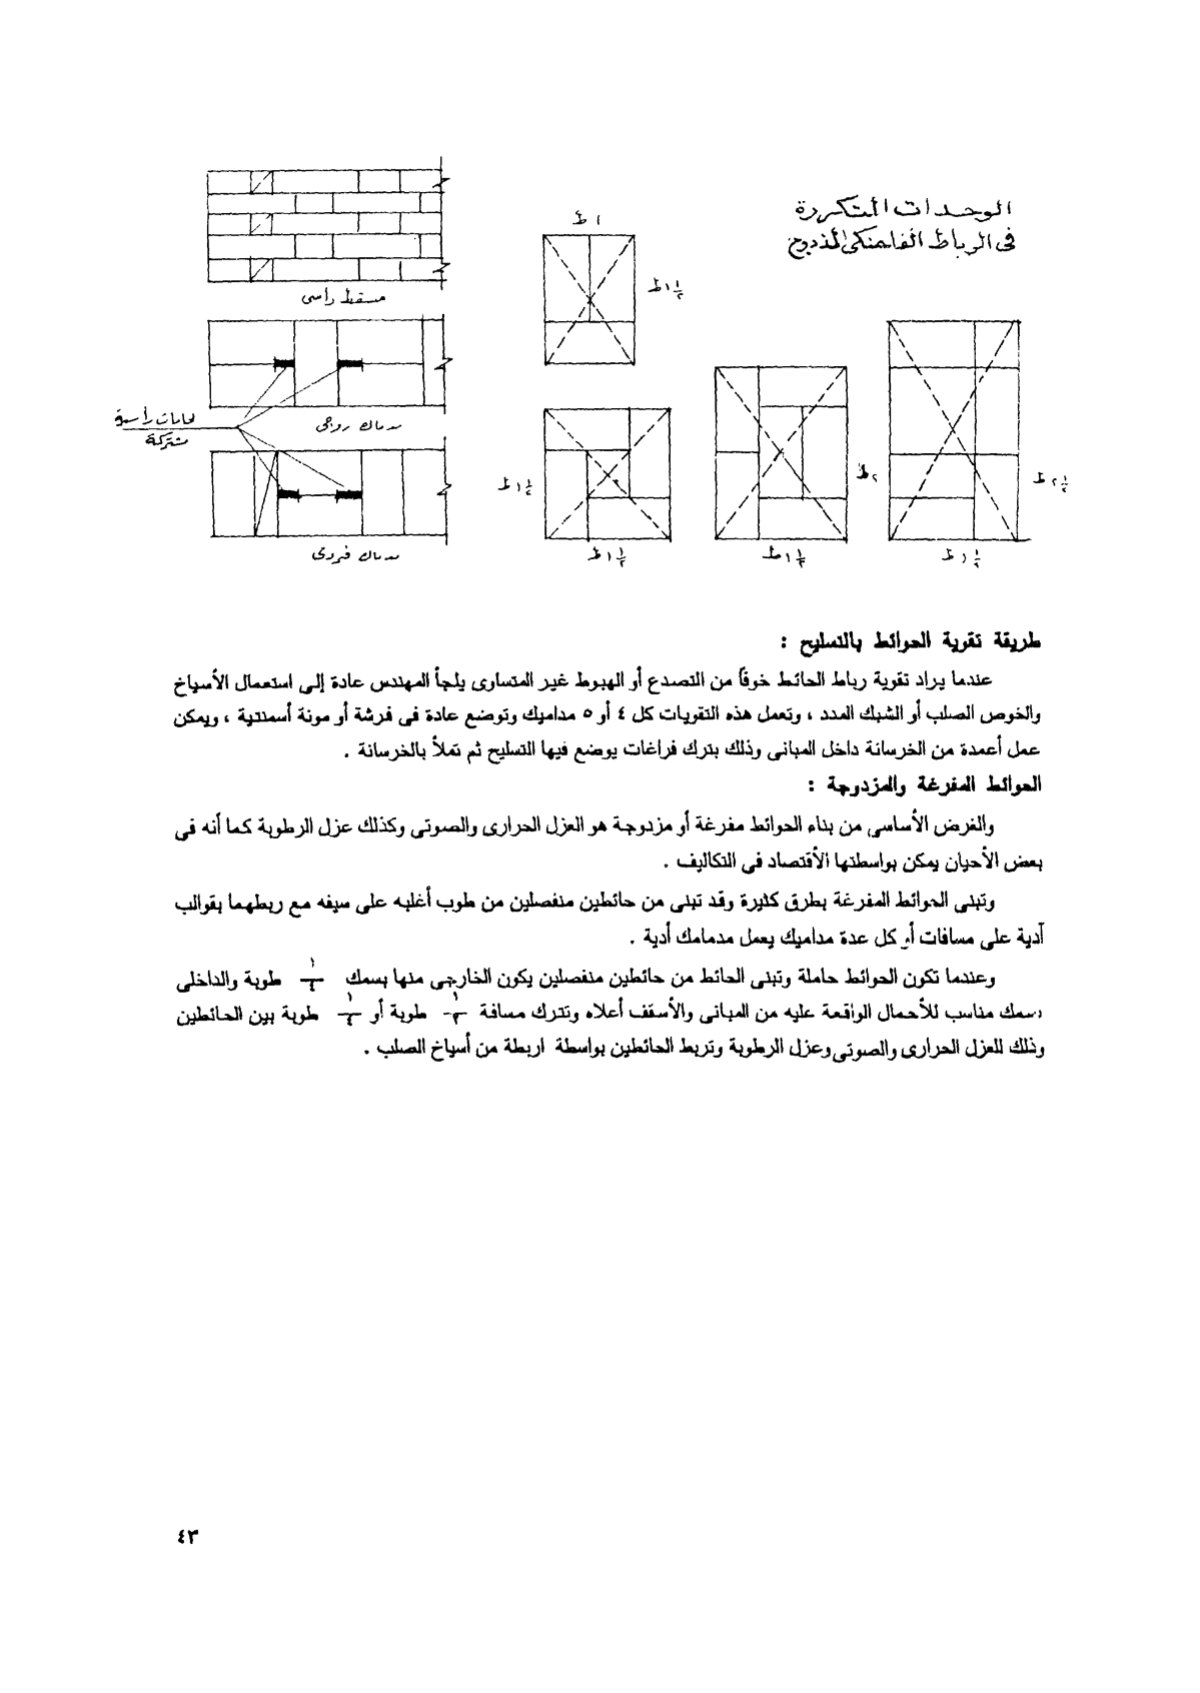 الوحدات المتكررة
فى الرباط الفلمنكى المزدوج
١ ط
١ ١/٢ ط
مسقط رأسى
لحامات رأسية
مشتركة
مدماك زوجى
مدماك فردى
١ ١/٢ ط
١ ١/٢ ط
٢ ط
١ ١/٢ ط
٢ ١/٢ ط
١ ١/٢ ط
طريقة تقوية الحوائط بالتسليح :
عندما يراد تقوية رباط الحائط خوفاً من التصدع أو الهبوط غير المتساوى يلجأ المهندس عادة إلى استعمال الأسياخ
والخوص الصلب أو الشبك المدد ، وتعمل هذه التقويات كل ٤ أو ٥ مداميك وتوضع عادة فى فرشة أو مونة أسمنتية ، ويمكن
عمل أعمدة من الخرسانة داخل المبانى وذلك بترك فراغات يوضع فيها التسليح ثم تملأ بالخرسانة .
الحوائط المفرغة والمزدوجة :
والغرض الأساسى من بناء الحوائط مفرغة أو مزدوجة هو العزل الحرارى والصوتى وكذلك عزل الرطوبة كما أنه فى
بعض الأحيان يمكن بواسطتها الأقتصاد فى التكاليف .
وتبنى الحوائط المفرغة بطرق كثيرة وقد تبنى من حائطين منفصلين من طوب أغلبه على سيفه مع ربطهما بقوالب
آدية على مسافات أو كل عدة مداميك يعمل مدمامك أدية .
وعندما تكون الحوائط حاملة وتبنى الحائط من حائطين منفصلين يكون الخارجى منها بسمك ١/٢ طوبة والداخلى
بسمك مناسب للأحمال الواقعة عليه من المبانى والأسقف أعلاه وتترك مسافة ١/٢ طوبة أو ١/٤ طوبة بين الحائطين
وذلك للعزل الحرارى والصوتى وعزل الرطوبة وتربط الحائطين بواسطة اربطة من أسياخ الصلب .
٤٣